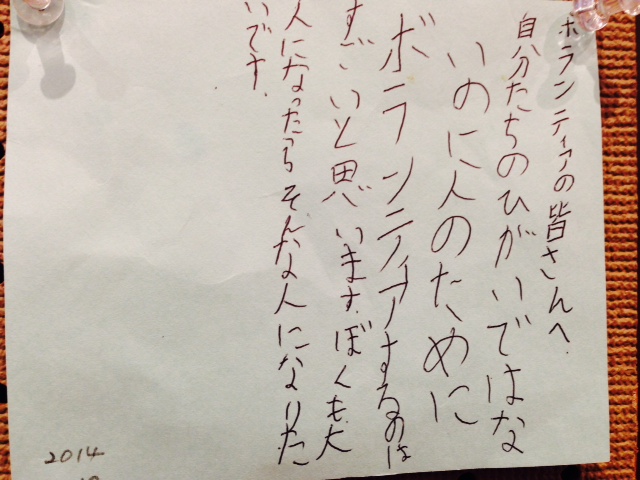 ボランティアの皆さんへ.
自分たちのひがいではな
いのに人のために
ボランティアするのは
すごいと思います.ぼくも大
人になったらそんな人になりた
いです.
2014